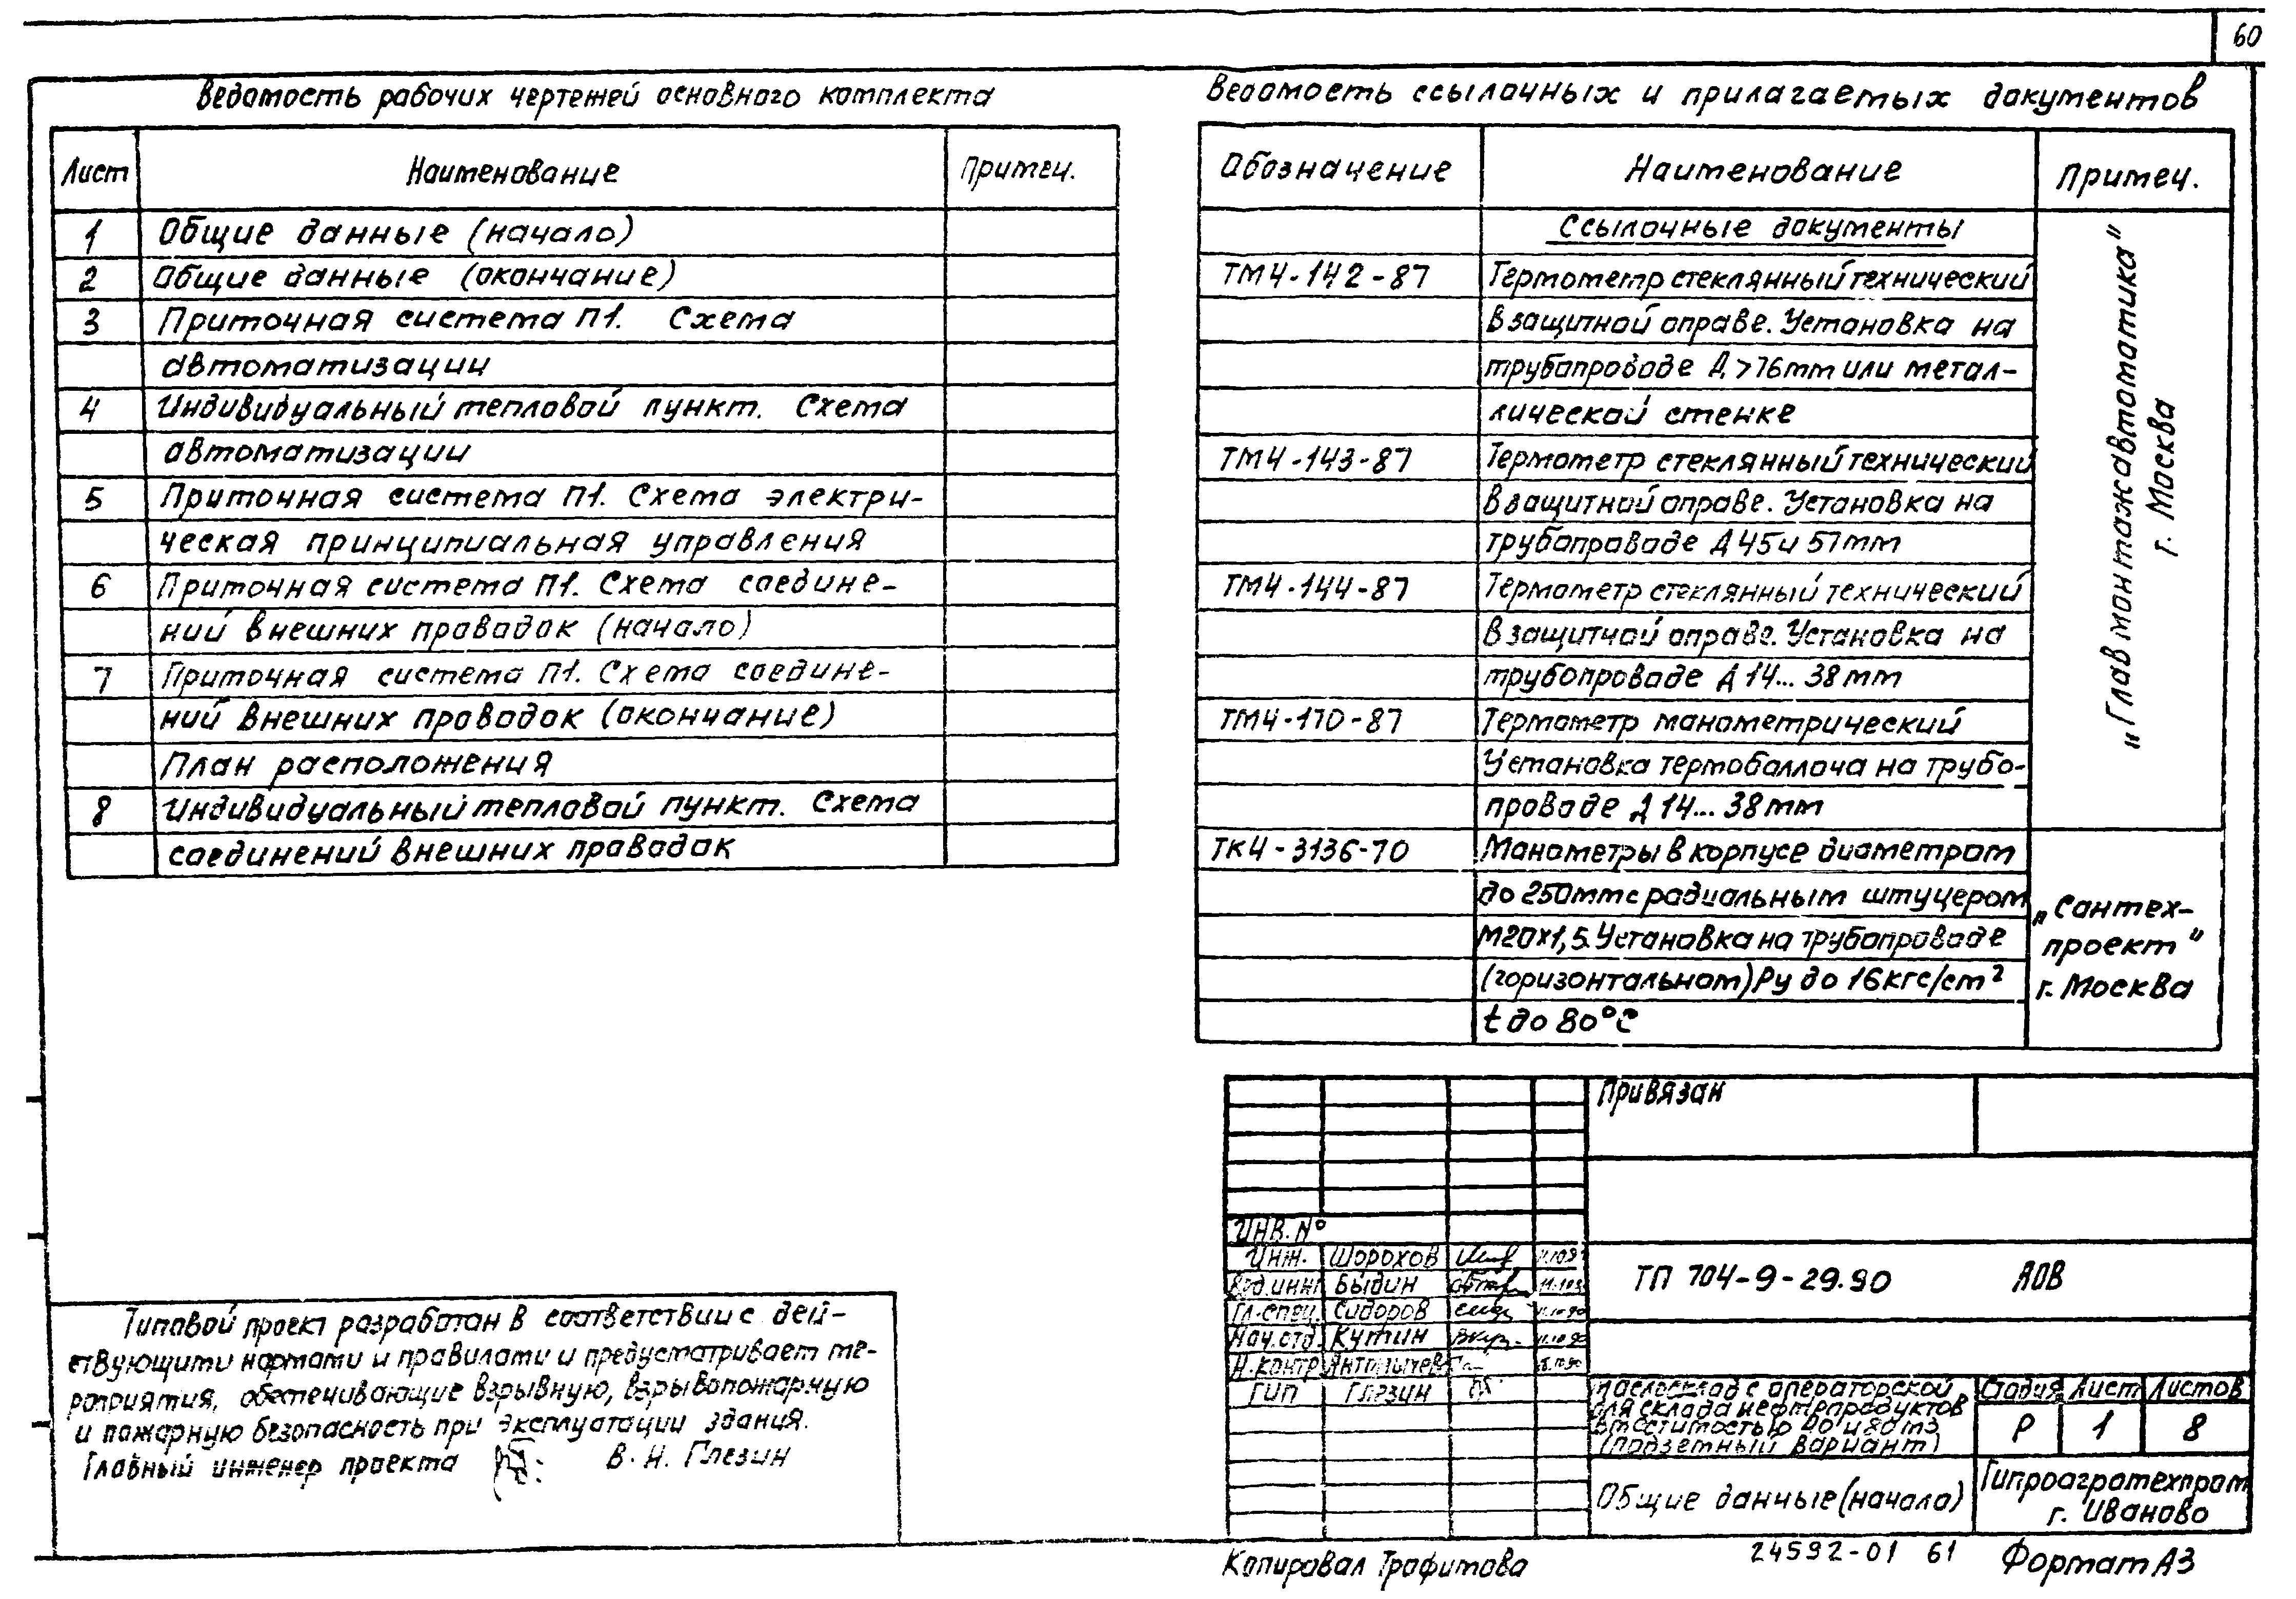 60
Ведомость рабочих чертежей основного комплекта
Лист Наименование Примеч.
1 Общие данные (начало)
2 Общие данные (окончание)
3 Приточная система П1. Схема
автоматизации
4 Индивидуальный тепловой пункт. Схема
автоматизации
5 Приточная система П1. Схема электри-
ческая принципиальная управления
6 Приточная система П1. Схема соедине-
ний внешних проводок (начало)
7 Приточная система П1. Схема соедине-
ний внешних проводок (окончание)
План расположения
8 Индивидуальный тепловой пункт. Схема
соединений внешних проводок
Ведомость ссылочных и прилагаемых документов
Обозначение Наименование Примеч.
Ссылочные документы
ТМ4-142-87 Термометр стеклянный технический
в защитной оправе. Установка на
трубопроводе Д>76mm или метал-
лической стенке
ТМ4-143-87 Термометр стеклянный технический
в защитной оправе. Установка на
трубопроводе Д 45 и 57mm
ТМ4-144-87 Термометр стеклянный технический
в защитной оправе. Установка на
трубопроводе Д 14... 38mm
ТМ4-170-87 Термометр манометрический
Установка термобаллона на трубо-
проводе Д 14... 38mm
„Главмонтажавтоматика"
г. Москва
ТК4-3136-70 Манометры в корпусе диаметром
до 250mm с радиальным штуцером
М20х1,5. Установка на трубопроводе
(горизонтальном) Ру до 16кгс/cm²
t до 80°С
„Сантех-
проект"
г. Москва
Типовой проект разработан в соответствии с дей-
ствующими нормами и правилами и предусматривает ме-
роприятия, обеспечивающие взрывную, взрывопожарную
и пожарную безопасность при эксплуатации здания.
Главный инженер проекта В. Н. Глезин
Привязан
ИНВ. №
Инж. Шорохов
Вед.инж Быдин
Гл.спец. Сидоров
Нач.отд. Кутин
Н.контр
ГИП Глезин
ТП 704-9-29.90 АОВ
Маслосклад с операторской
для склада нефтепродуктов
вместимостью и 80 m3
(подземный вариант)
Стадия Лист Листов
Р 1 8
Общие данные (начало)
Гипроагротехпром
г. Иваново
Копировал Трофимова
24592-01 61
Формат А3